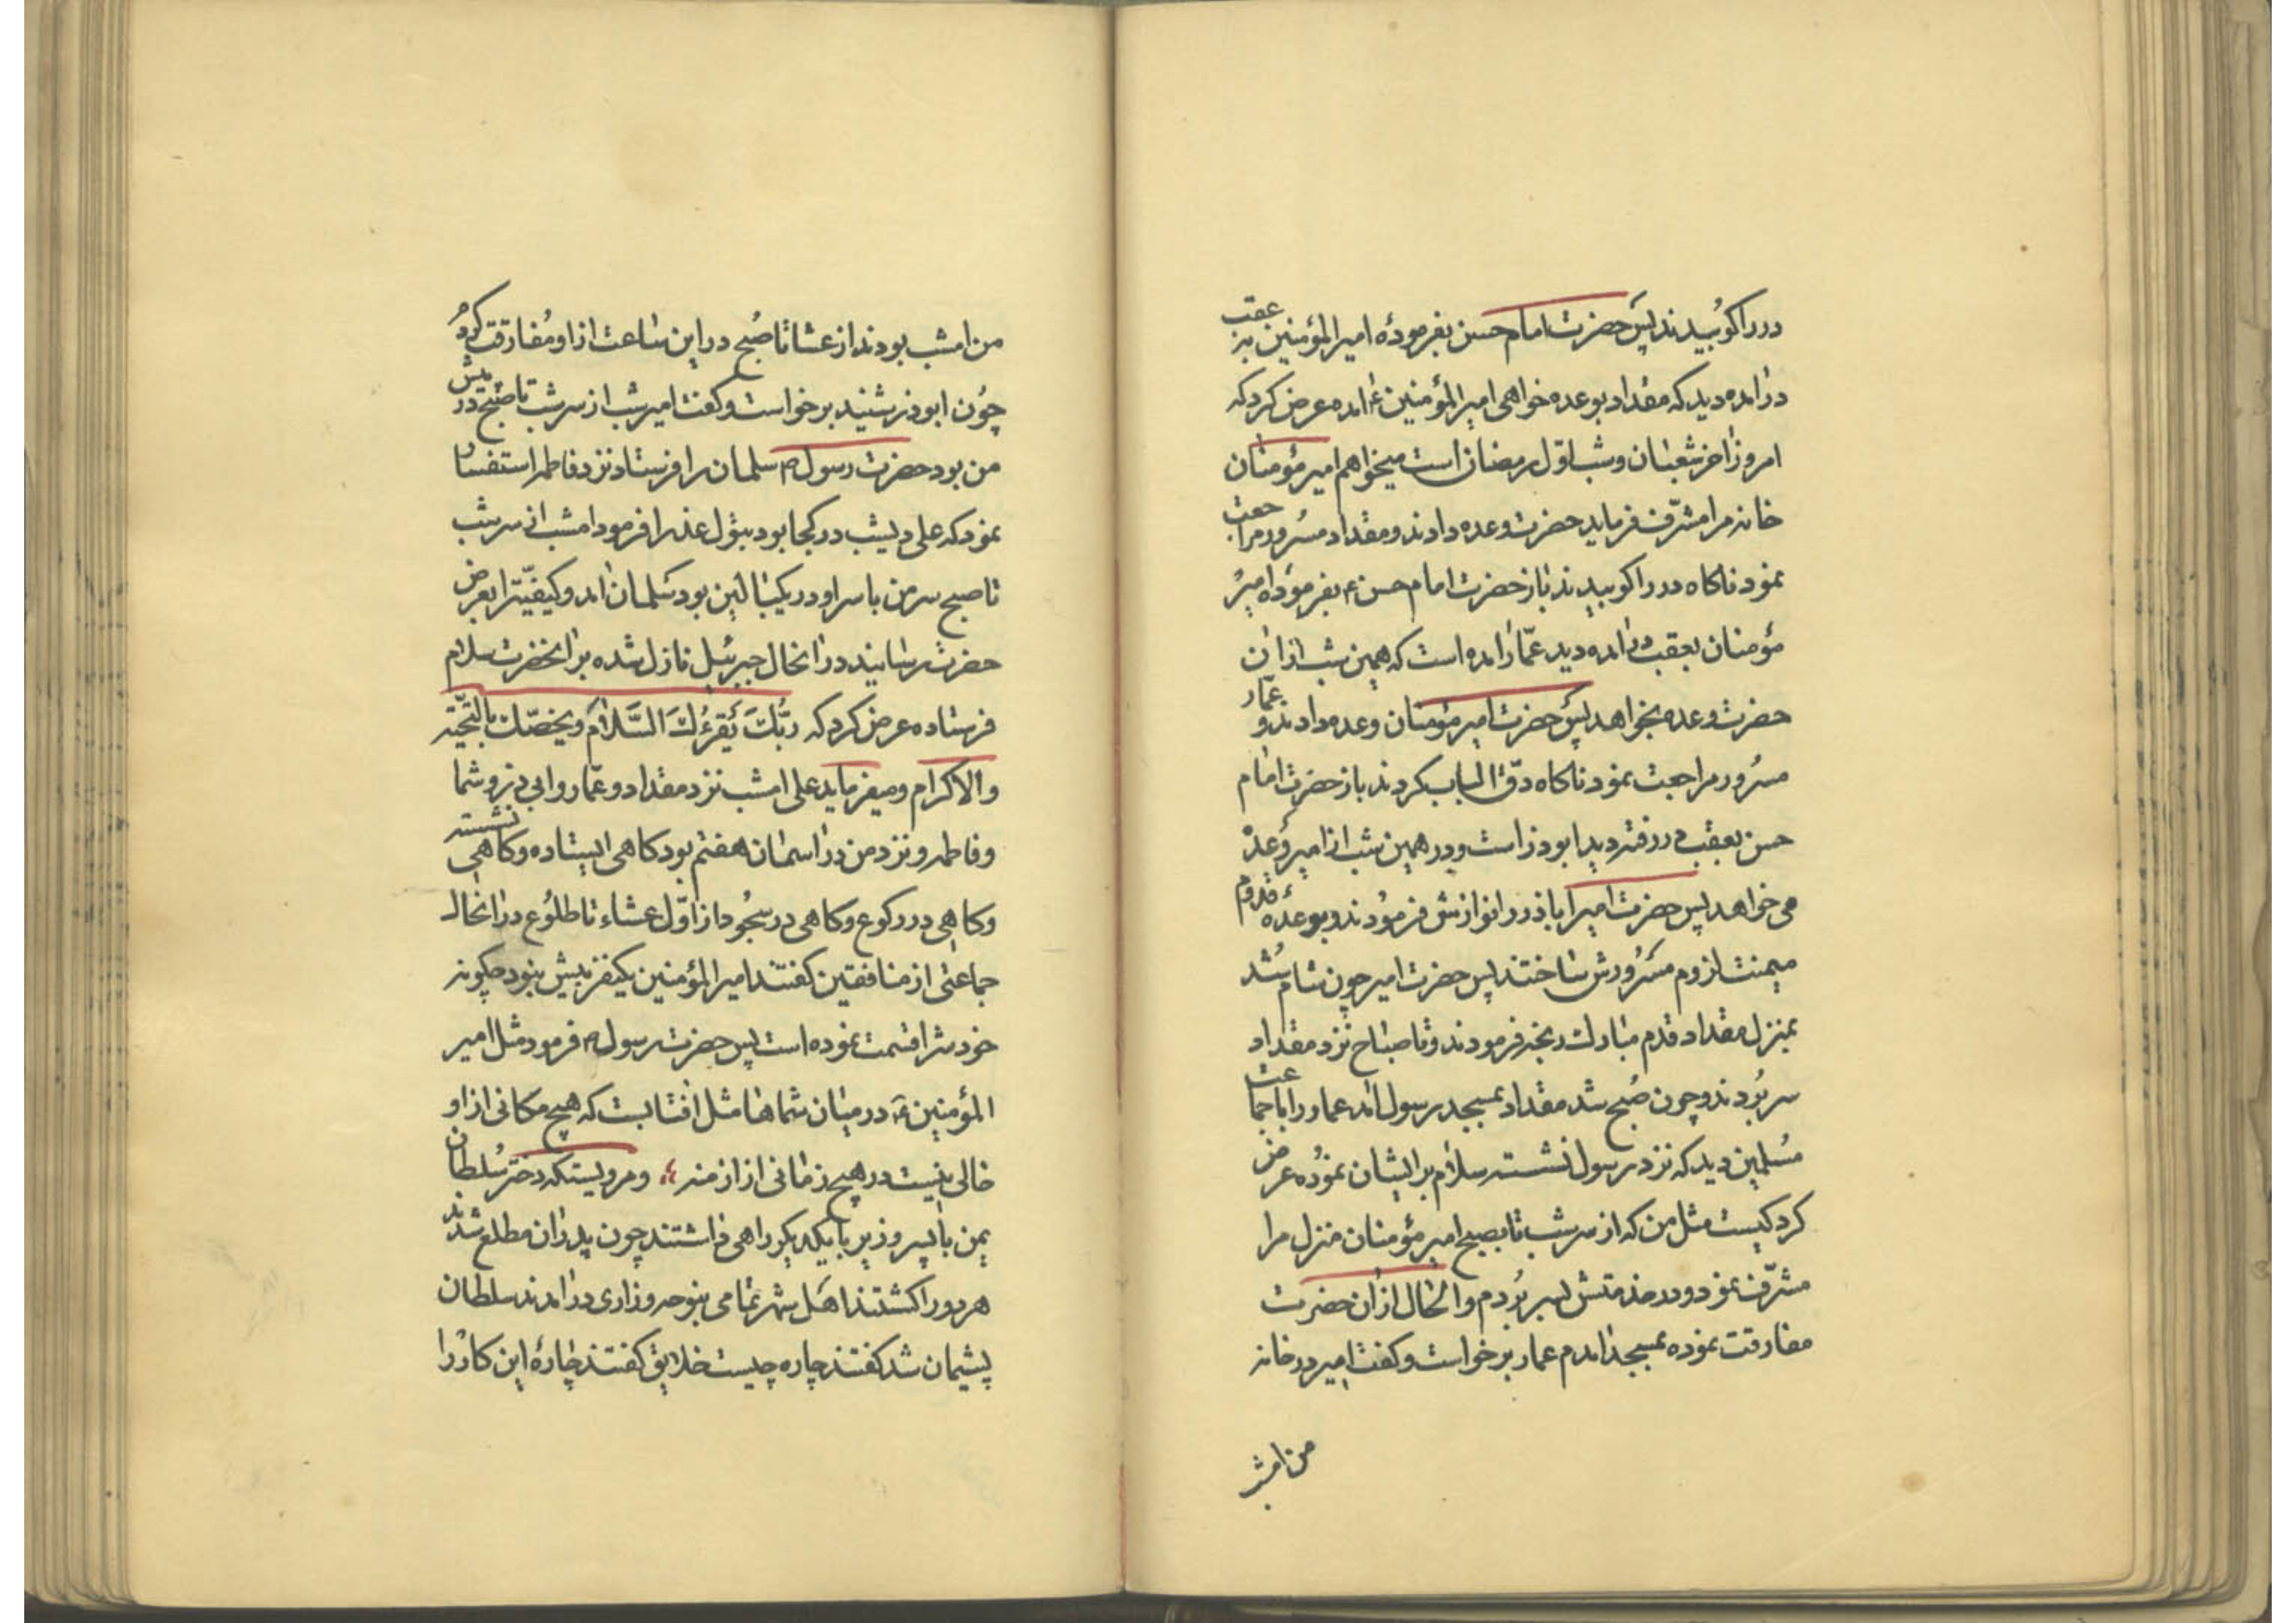 در را کوبیدند پس حضرت امام حسن بفرمودهٔ امیر المؤمنین بر عقب
در آمده دید که مقداد بوعده خواهی امیر المؤمنین ع آمده عرض کرد که
امروز آخر شعبان و شب اوّل رمضان است میخواهم امیر مؤمنان
خانه مرا مشرّف فرماید حضرت وعده دادند و مقداد مسرور مراجعت
نمود ناکاه در را کوبیدند باز حضرت امام حسن ع بفرموده امیر
مؤمنان بعقب در آمده دید عمّار آمده است که همین شب از آن
حضرت وعده بخواهد پس حضرت امیر مؤمنان وعده دادند و عمّار
مسرور مراجعت نمود ناکاه دقّ الباب کردند باز حضرت امام
حسن بعقب در رفته دید ابوذر است و در همین شب از امیر وعده
می خواهد پس حضرت امیر اباذر را نوازش فرمودند و بوعدهٔ قدوم
میمنت لزوم مسرورش ساختند پس حضرت امیر چون شام شد
بمنزل مقداد قدم مبارک رنجه فرمودند و تا صباح نزد مقداد
سر بردند و چون صبح شد مقداد بمسجد رسول آمد عمار را با جماعت
مسلمین دید که نزد رسول نشسته سلام بر ایشان نموده عرض
کرد کیست مثل من که از سر شب تا بصبح امیر مؤمنان منزل مرا
مشرّف نمود و در خدمتش بسر بردم و الحال از آن حضرت
مفارقت نموده بمسجد آمدم عمار برخواست و کفت امیر در خانه
من امشب
من امشب بودند از عشا تا صبح در این ساعت از او مفارقت کرده
چون ابوذر شنید برخواست و کفت امیر شب از سر شب تا صبح در پیش
من بود حضرت رسول ص سلمان را فرستاد نزد فاطمه استفسار
نمود که علی دیشب در کجا بود بتول عذرا فرمود امشب از سر شب
تا صبح سر من با سر او در یک بالین بود سلمان آمد و کیفیّت را بعرض
حضرت رسانید در آنحال جبرئیل نازل شده بر آنحضرت سلام
فرستاده عرض کرد که ربُّكَ يَقرَءُكَ السَّلامَ ویخصّك بالتحیّة
والاکرام و میفرماید علی امشب نزد مقداد و عمّار و ابی ذر و شما
و فاطمه و نزد من در آسمان هفتم بود کاهی ایستاده و کاهی نشسته
و کاهی در رکوع و کاهی در سجود از اوّل عشاء تا طلوع در آنحال
جماعتی از منافقین کفتند امیر المؤمنین یکنفر بیش نبود چکونه
خود را قسمت نموده است پس حضرت رسول ص فرمود مثل امیر
المؤمنین ع در میان شماها مثل افتابست که هیچ مکانی از او
خالی نیست در هیچ زمانی از ازمنه و مرویستکه دختر سلطان
یمن با پسر وزیر با یکدیکر راهی داشتند چون پدران مطلع شدند
هر دو را کشتند اهل شهر تمامی بنوحه و زاری در آمدند سلطان
پشیمان شد کفتند چاره چیست خلایق کفتند چارهٔ این کار را